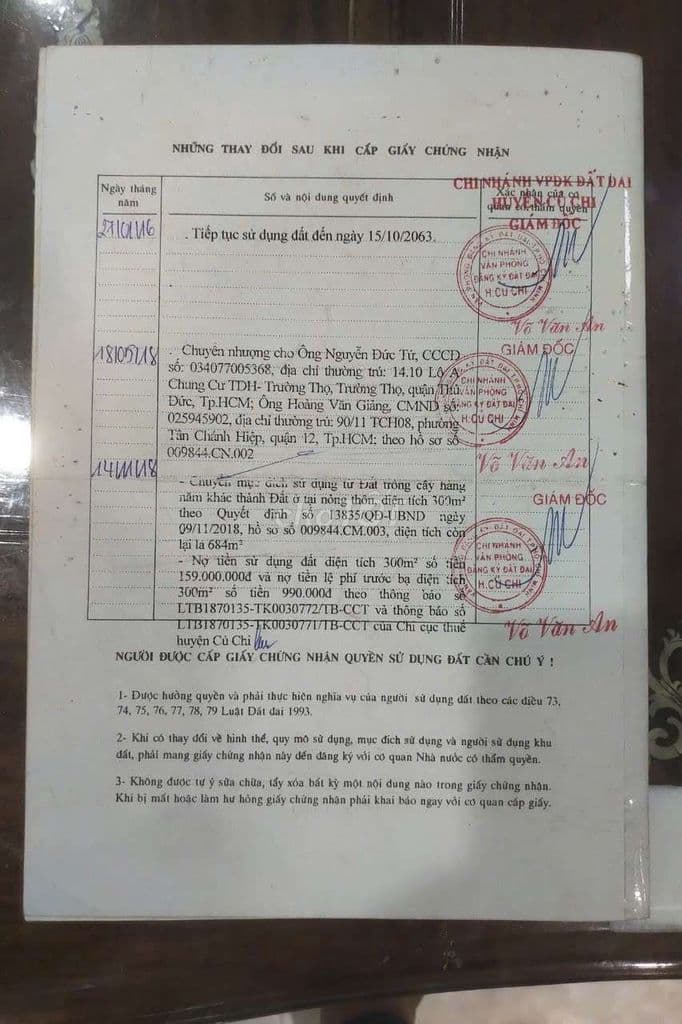 NHỮNG THAY ĐỔI SAU KHI CẤP GIẤY CHỨNG NHẬN
Ngày tháng năm
Số và nội dung quyết định
Xác nhận của cơ quan có thẩm quyền
CHI NHÁNH VPĐK ĐẤT ĐAI
HUYỆN CỦ CHI
GIÁM ĐỐC
27/01/16
. Tiếp tục sử dụng đất đến ngày 15/10/2063.
CHI NHÁNH
VĂN PHÒNG
ĐĂNG KÝ ĐẤT ĐAI
H.CỦ CHI
Võ Văn An
18/05/18
. Chuyển nhượng cho Ông Nguyễn Đức Tứ, CCCD
số: 034077005368, địa chỉ thường trú: 14.10 Lô A
Chung Cư TDH- Trường Thọ, Trường Thọ, quận Thủ
Đức, Tp.HCM; Ông Hoàng Văn Giảng, CMND số:
025945902, địa chỉ thường trú: 90/11 TCH08, phường
Tân Chánh Hiệp, quận 12, Tp.HCM; theo hồ sơ số
009844.CN.002
GIÁM ĐỐC
CHI NHÁNH
VĂN PHÒNG
ĐĂNG KÝ ĐẤT ĐAI
H.CỦ CHI
Võ Văn An
14/11/18
- Chuyển mục đích sử dụng từ Đất trồng cây hàng
năm khác thành Đất ở tại nông thôn, diện tích 300m²
theo Quyết định số 13835/QĐ-UBND ngày
09/11/2018, hồ sơ số 009844.CM.003, diện tích còn
lại là 684m²
- Nợ tiền sử dụng đất diện tích 300m² số tiền
159.000.000đ và nợ tiền lệ phí trước bạ diện tích
300m² số tiền 990.000đ theo thông báo số
LTB1870135-TK0030772/TB-CCT và thông báo số
LTB1870135-TK0030771/TB-CCT của Chi cục thuế
huyện Củ Chi
GIÁM ĐỐC
CHI NHÁNH
VĂN PHÒNG
ĐĂNG KÝ ĐẤT ĐAI
H.CỦ CHI
Võ Văn An
NGƯỜI ĐƯỢC CẤP GIẤY CHỨNG NHẬN QUYỀN SỬ DỤNG ĐẤT CẦN CHÚ Ý !
1- Được hưởng quyền và phải thực hiện nghĩa vụ của người sử dụng đất theo các điều 73,
74, 75, 76, 77, 78, 79 Luật Đất đai 1993.
2- Khi có thay đổi về hình thể, quy mô sử dụng, mục đích sử dụng và người sử dụng khu
đất, phải mang giấy chứng nhận này đến đăng ký với cơ quan Nhà nước có thẩm quyền.
3- Không được tự ý sữa chữa, tẩy xóa bất kỳ một nội dung nào trong giấy chứng nhận.
Khi bị mất hoặc làm hư hỏng giấy chứng nhận phải khai báo ngay với cơ quan cấp giấy.